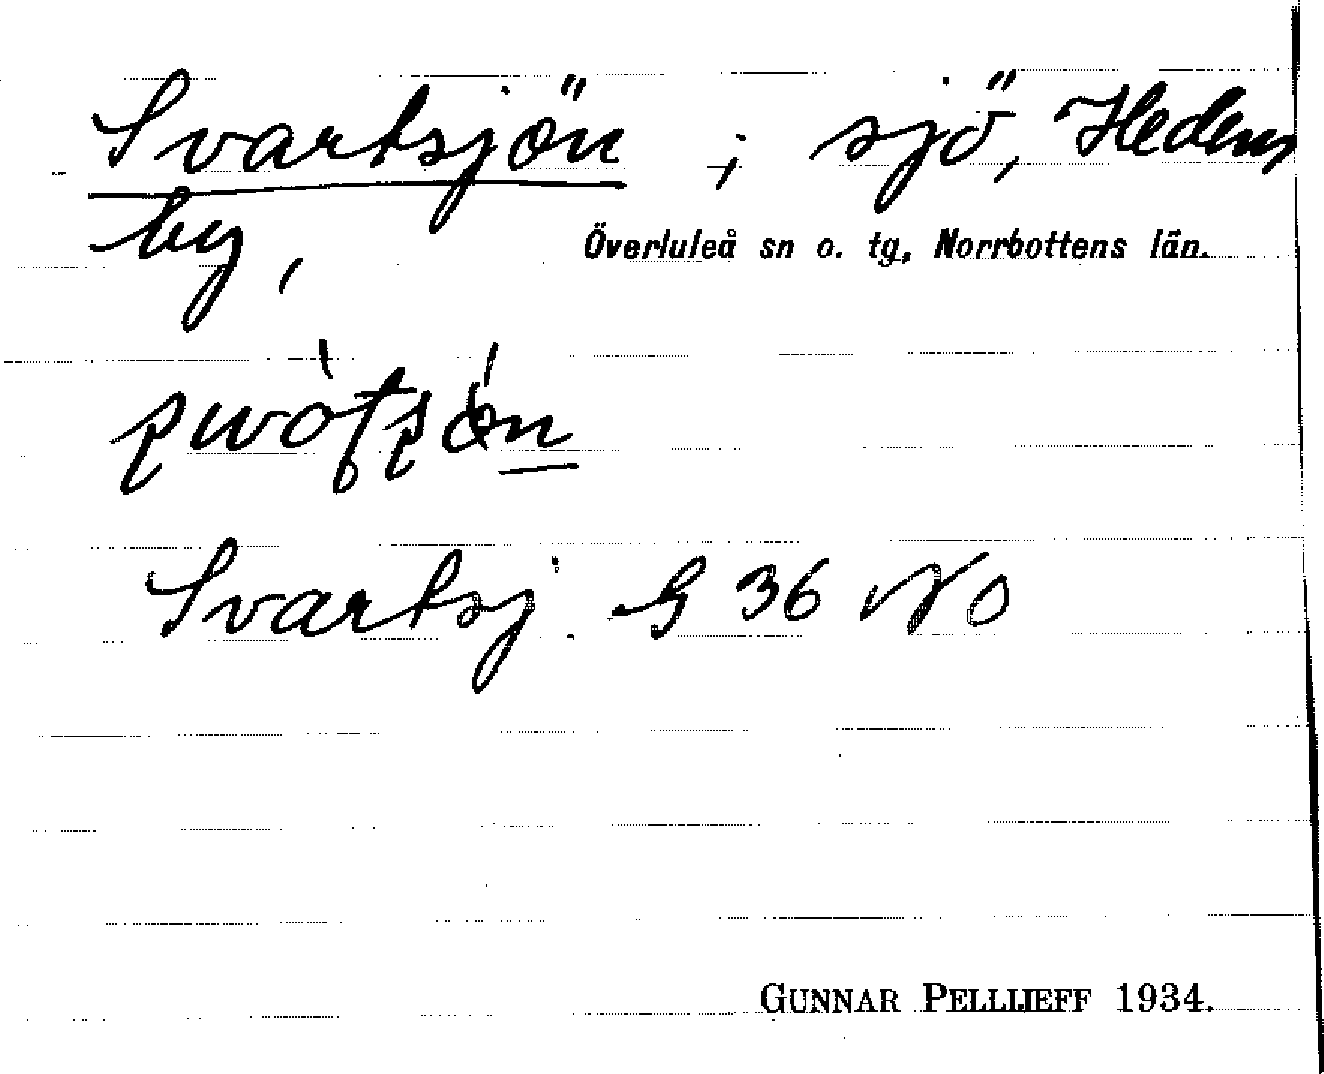 Svartsjön ; sjö, Hedens
by,
Överluleå sn o. tg, Norrbottens län.
Svartsj. G 36 NO
GUNNAR PELLIJEFF 1934.